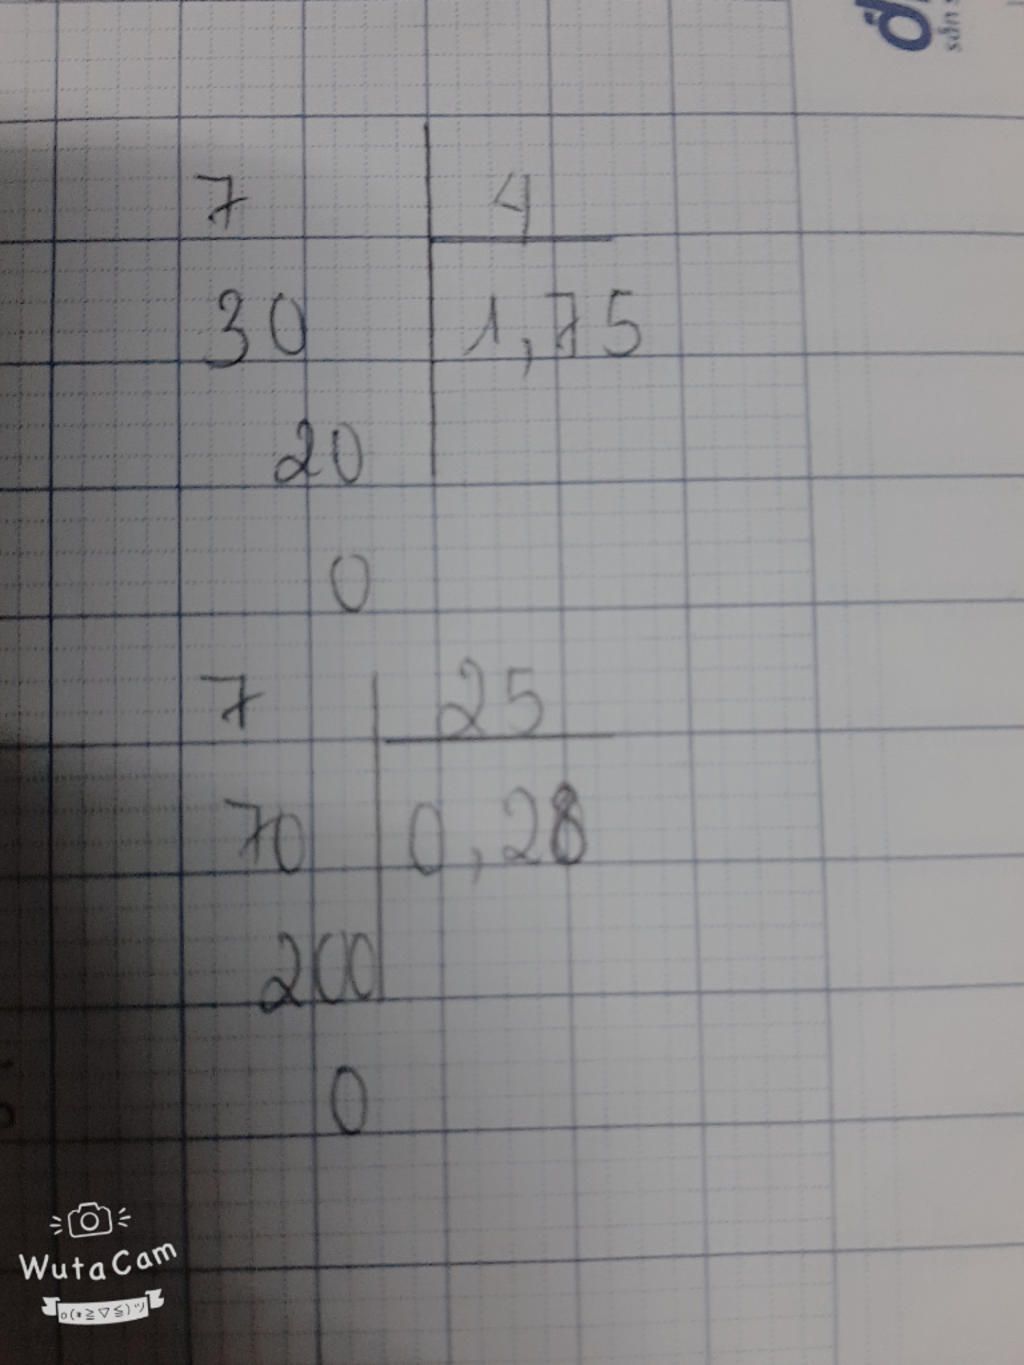 7 4
30 1,75
20
0
7 25
70 0,28
200
0
WutaCam